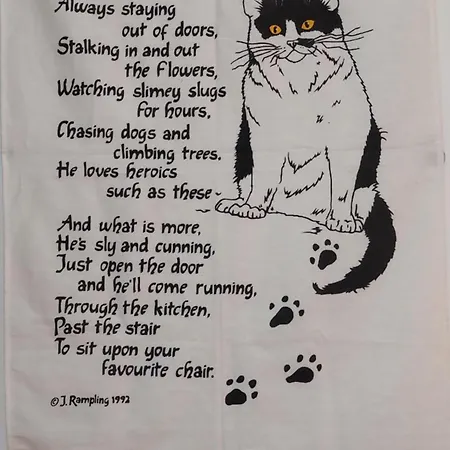 Always staying
out of doors,
Stalking in and out
the flowers,
Watching slimey slugs
for hours,
Chasing dogs and
climbing trees.
He loves heroics
such as these~
And what is more,
He's sly and cunning,
Just open the door
and he'll come running,
Through the kitchen,
Past the stair
To sit upon your
favourite chair.
© J. Rampling 1992